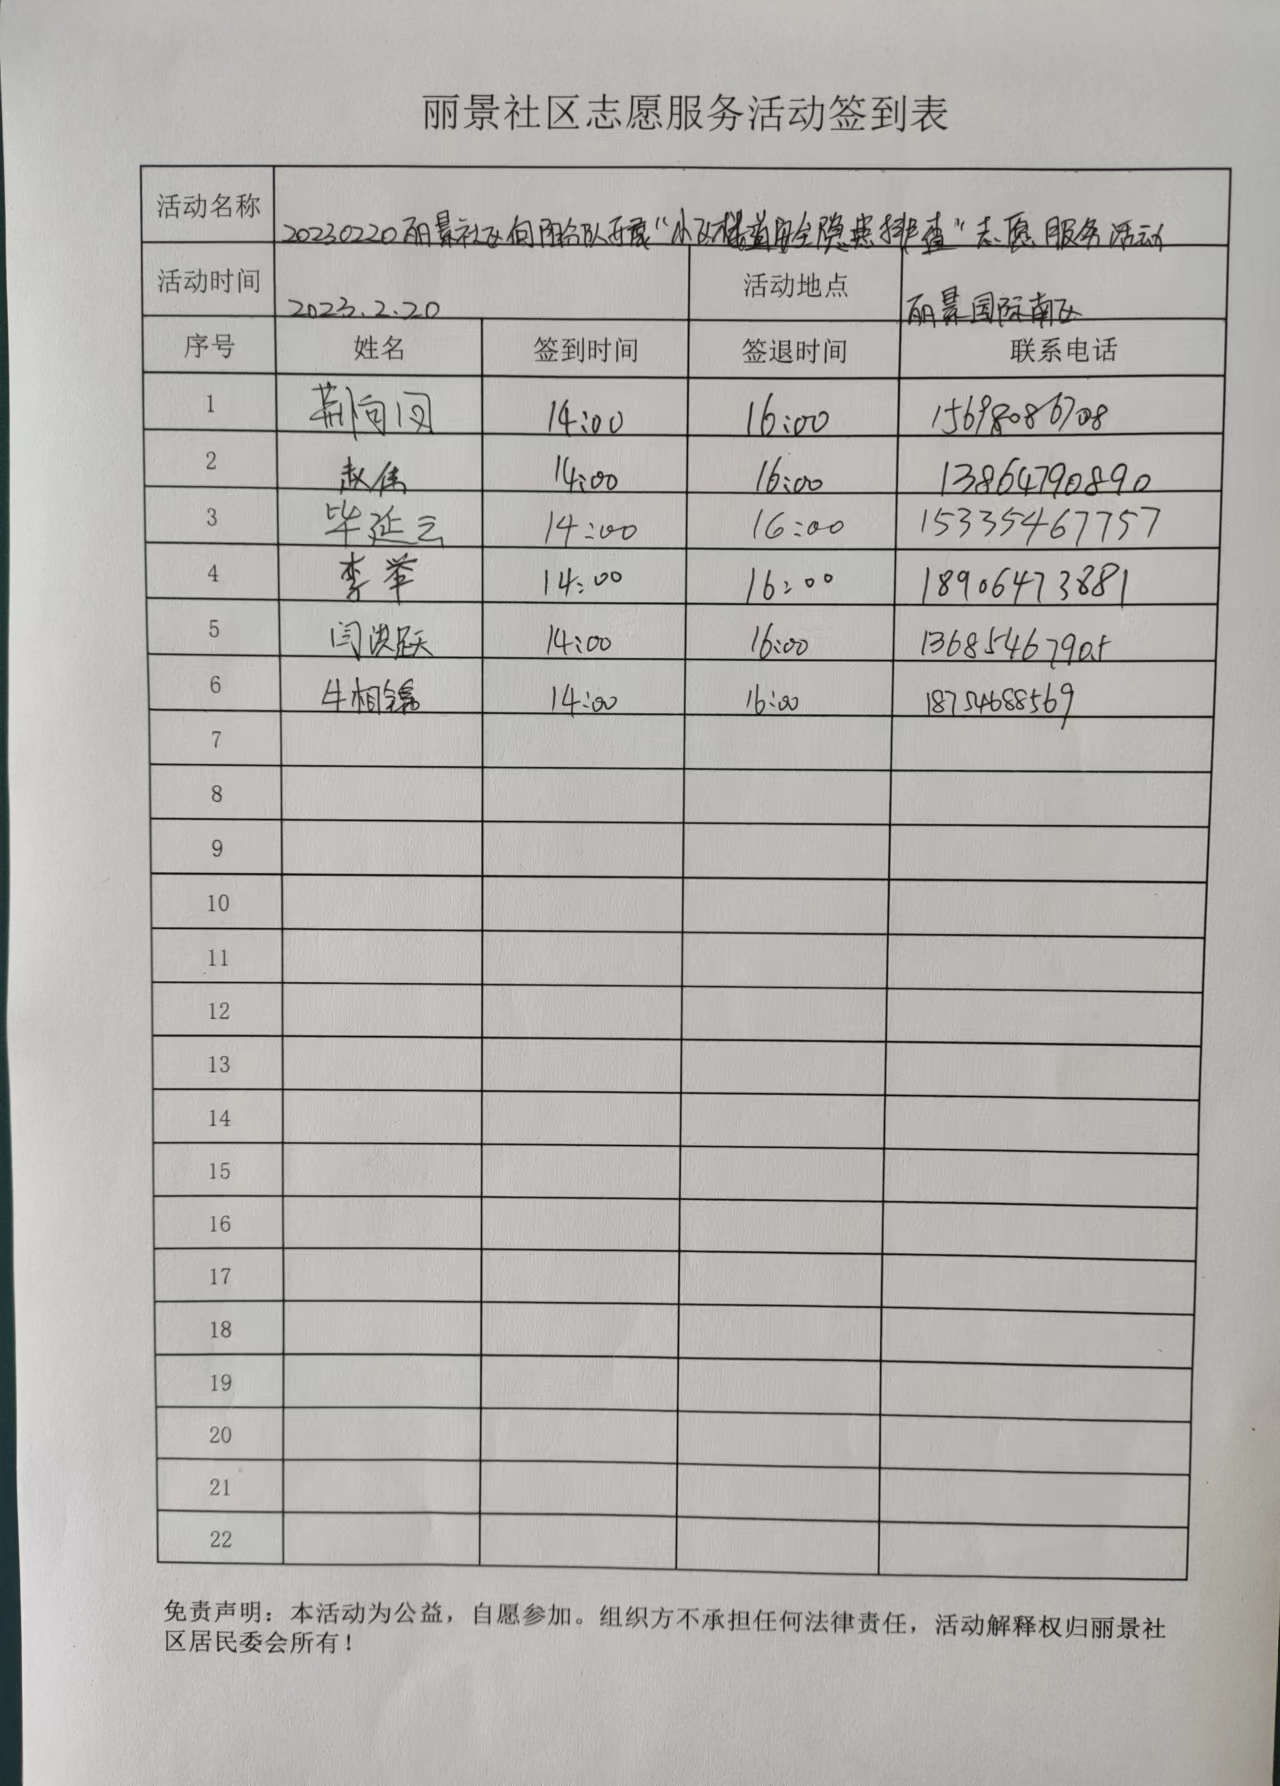 丽景社区志愿服务活动签到表
活动名称 20230220丽景社区向阳分队开展“小区楼道安全隐患排查”志愿服务活动
活动时间 2023.2.20 活动地点 丽景国际南区
序号 姓名 签到时间 签退时间 联系电话
1 荆向 14:00 16:00 15698086708
2 赵伟 14:00 16:00 13864790890
3 毕延云 14:00 16:00 15335467757
4 李举 14:00 16:00 18906473881
5 闫洪跃 14:00 16:00 13685467905
6 牛相 14:00 16:00 18754688569
7
8
9
10
11
12
13
14
15
16
17
18
19
20
21
22
免责声明：本活动为公益，自愿参加。组织方不承担任何法律责任，活动解释权归丽景社
区居民委会所有！